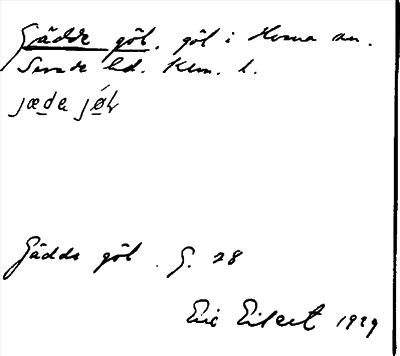 Gädde göl. göl i Horna sn.
Sevede hd. Klm. l.
jæde jøl
Gädde göl. G. 28
Eric Eilert 1929